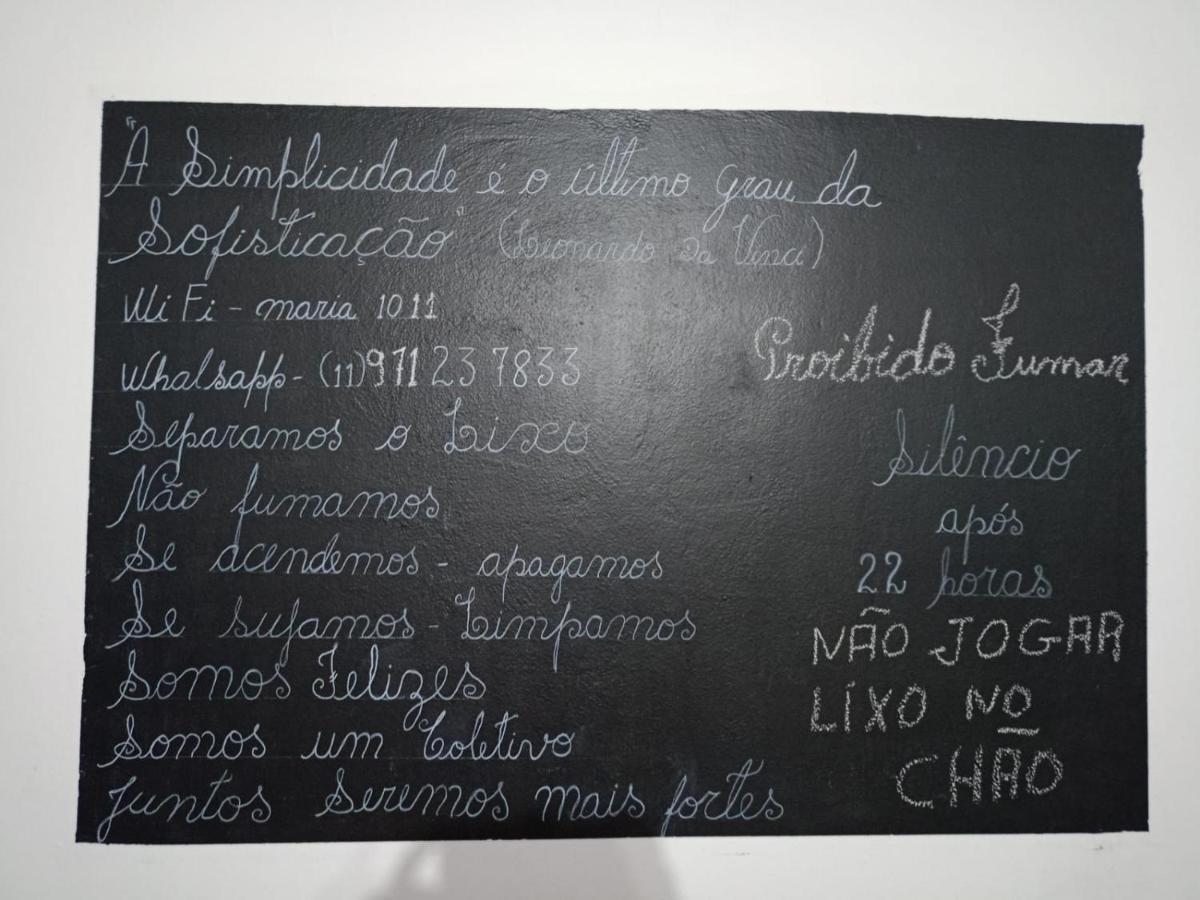 "A Simplicidade é o último grau da
Sofisticação" (Leonardo Da Vinci)
Wi Fi - maria 1011
Whatsapp - (11) 971 23 7833
Separamos o Lixo
Não fumamos
Se acendemos - apagamos
Se sujamos - Limpamos
Somos Felizes
Somos um Coletivo
Juntos Seremos mais fortes
Proibido Fumar
Silêncio
após
22 horas
NÃO JOGAR
LIXO NO
CHÃO